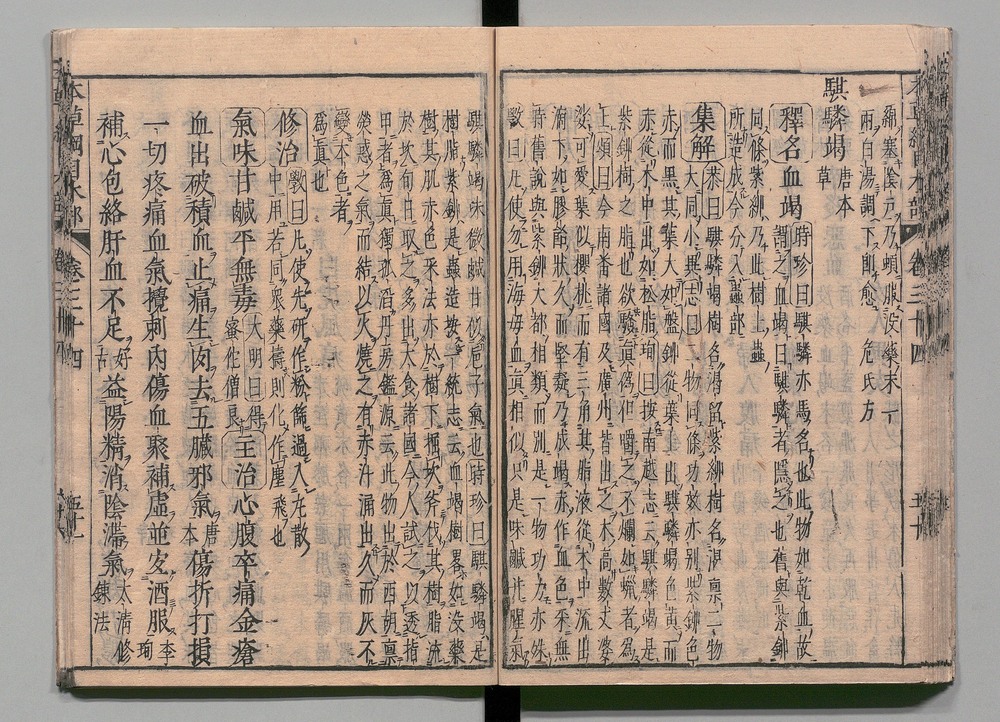 本草綱目木部 卷三十四 五十
綿塞陰戶乃頓服沒藥末一
兩白湯調下即愈 危氏方
騏驎竭 唐本草
釋名血竭 時珍曰騏驎亦馬名也此物如乾血故
謂之血竭曰騏驎者隱之也舊與紫鉚
同條紫鉚乃此樹上蟲
所造成今分入蟲部
集解 恭曰騏驎竭樹名渴留紫鉚樹名渴稟二物
大同小異志曰二物同條功效亦別紫鉚色
赤而黑其葉大如盤鉚從葉上出騏驎竭色黃而
赤從木中出如松脂珣曰按南越志云騏驎竭是
紫鉚樹之脂也欲驗真偽但嚼之不爛如蠟者為
上頌曰今南番諸國及廣州皆出之木高數丈婆
娑可愛葉似櫻桃而有三角其脂液從木中流出
滴下如膠飴狀久而堅凝乃成竭赤作血色采無
時舊說與紫鉚大都相類而別是一物功力亦殊
斅曰凡使勿用海母血真相似只是味鹹并腥氣
騏驎竭味微鹹甘似巵子氣也時珍曰騏驎竭是
樹脂紫鉚是蟲造按一統志云血竭樹畧如沒藥
樹其肌赤色采法亦於樹下掘坎斧伐其樹脂流
於坎旬日取之多出大食諸國今人試之以透指
甲者為真獨孤滔丹房鑑源云此物出於西胡稟
熒惑之氣而結以火燒之有赤汁涌出久而灰不
變本色者
為真也
修治 斅曰凡使先研作粉篩過入丸散
中用若同眾藥擣則化作塵飛也
氣味甘鹹平無毒 大明曰得蜜佗僧良 主治心腹卒痛金瘡
血出破積血止痛生肉去五臟邪氣唐本 傷折打損
一切疼痛血氣攪刺內傷血聚補虛並宜酒服李珣
補心包絡肝血不足好古 益陽精消陰滯氣太清修鍊法
本草綱目木部 卷三十四 五十一